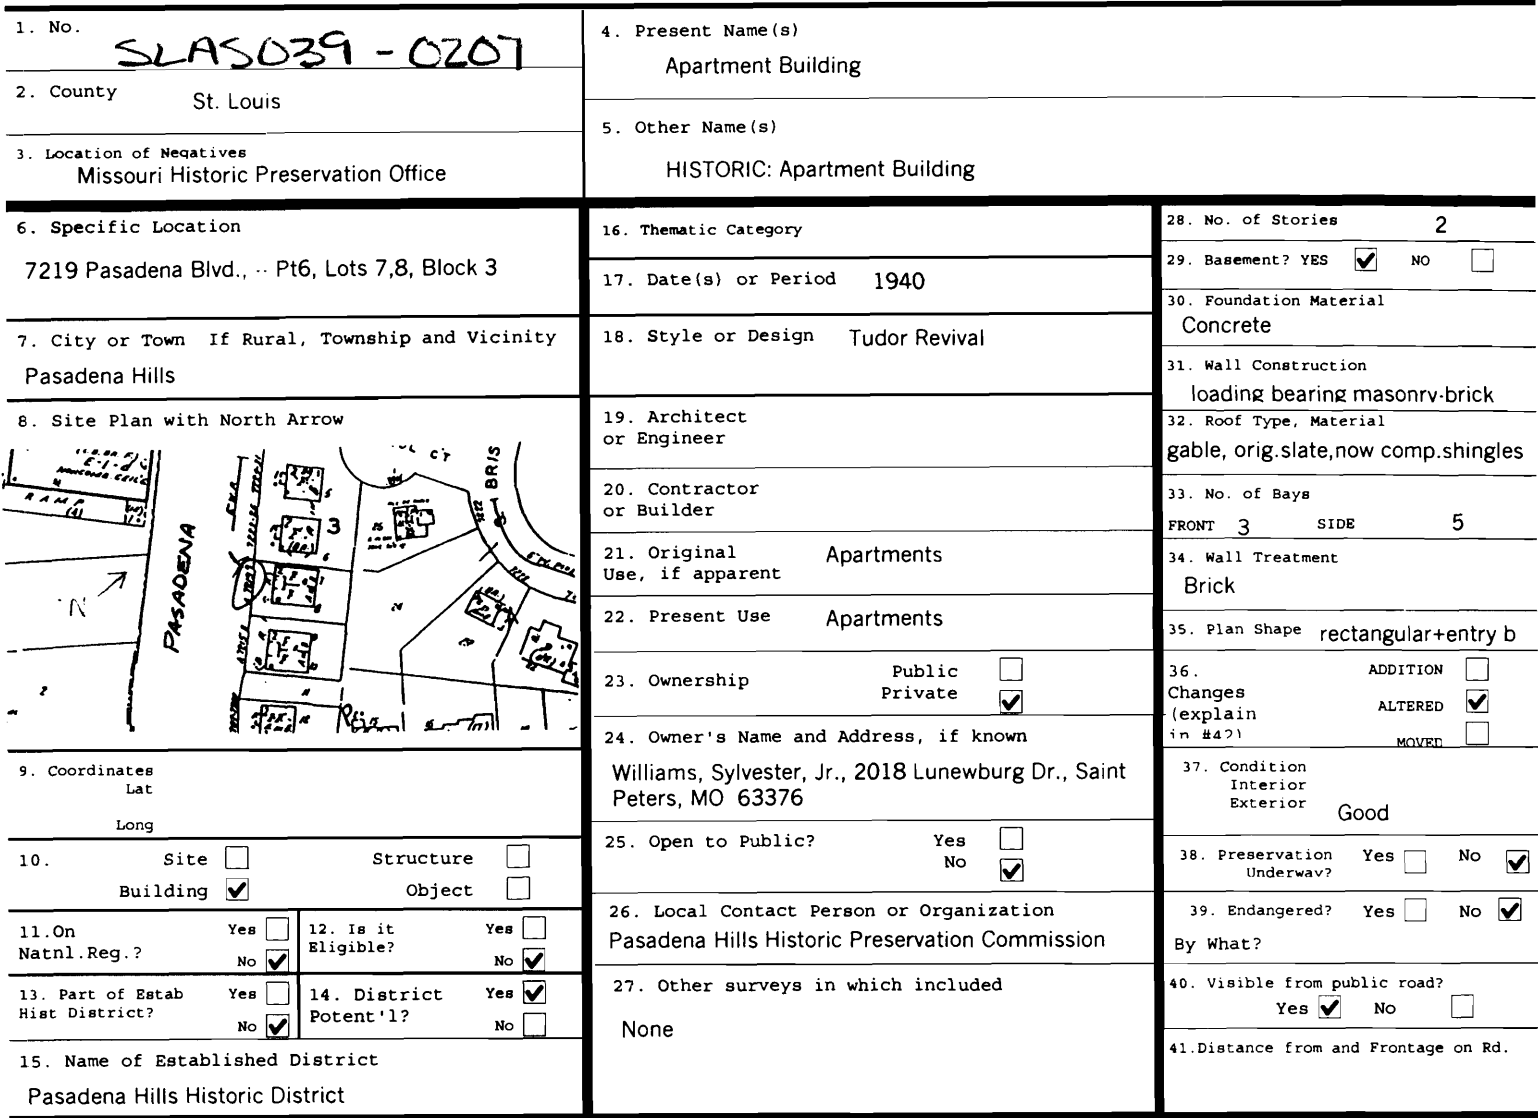 1. No.
SLAS039 - 0207
2. County
St. Louis
3. Location of Negatives
Missouri Historic Preservation Office
4. Present Name(s)
Apartment Building
5. Other Name(s)
HISTORIC: Apartment Building
6. Specific Location
7219 Pasadena Blvd., -- Pt6, Lots 7,8, Block 3
7. City or Town If Rural, Township and Vicinity
Pasadena Hills
8. Site Plan with North Arrow
RAMP
(4)
PASADENA
N
3
CT
BRIS
9. Coordinates
Lat
Long
10. Site Structure
Building ✔ Object
11.On Yes
Natnl.Reg.? No ✔
12. Is it Yes
Eligible? No ✔
13. Part of Estab Yes
Hist District? No ✔
14. District Yes ✔
Potent'l? No
15. Name of Established District
Pasadena Hills Historic District
16. Thematic Category
17. Date(s) or Period 1940
18. Style or Design Tudor Revival
19. Architect
or Engineer
20. Contractor
or Builder
21. Original Apartments
Use, if apparent
22. Present Use Apartments
23. Ownership Public
Private ✔
24. Owner's Name and Address, if known
Williams, Sylvester, Jr., 2018 Lunewburg Dr., Saint
Peters, MO 63376
25. Open to Public? Yes
No ✔
26. Local Contact Person or Organization
Pasadena Hills Historic Preservation Commission
27. Other surveys in which included
None
28. No. of Stories 2
29. Basement? YES ✔ NO
30. Foundation Material
Concrete
31. Wall Construction
loading bearing masonry-brick
32. Roof Type, Material
gable, orig.slate,now comp.shingles
33. No. of Bays
FRONT 3 SIDE 5
34. Wall Treatment
Brick
35. Plan Shape rectangular+entry b
36. ADDITION
Changes
(explain ALTERED ✔
in #42) MOVED
37. Condition
Interior
Exterior Good
38. Preservation Yes No ✔
Underway?
39. Endangered? Yes No ✔
By What?
40. Visible from public road?
Yes ✔ No
41.Distance from and Frontage on Rd.